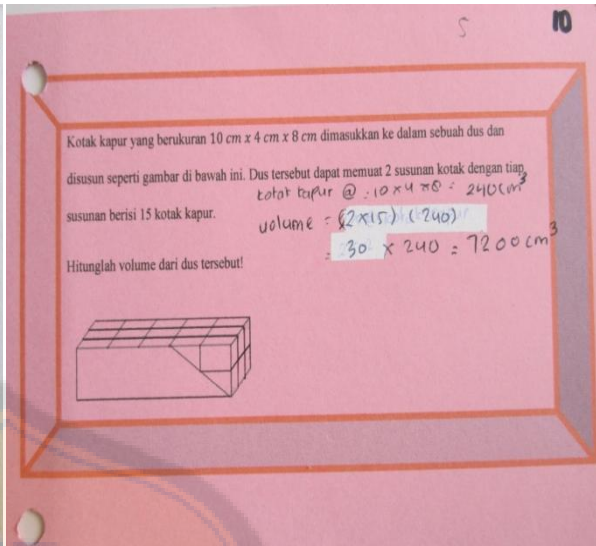 5 10
Kotak kapur yang berukuran 10 cm x 4 cm x 8 cm dimasukkan ke dalam sebuah dus dan
disusun seperti gambar di bawah ini. Dus tersebut dapat memuat 2 susunan kotak dengan tiap
kotak kapur @ : 10 x 4 x 8 = 240 cm³
susunan berisi 15 kotak kapur.
volume = (2x15) (240)
= 30 x 240 = 7200 cm³
Hitunglah volume dari dus tersebut!